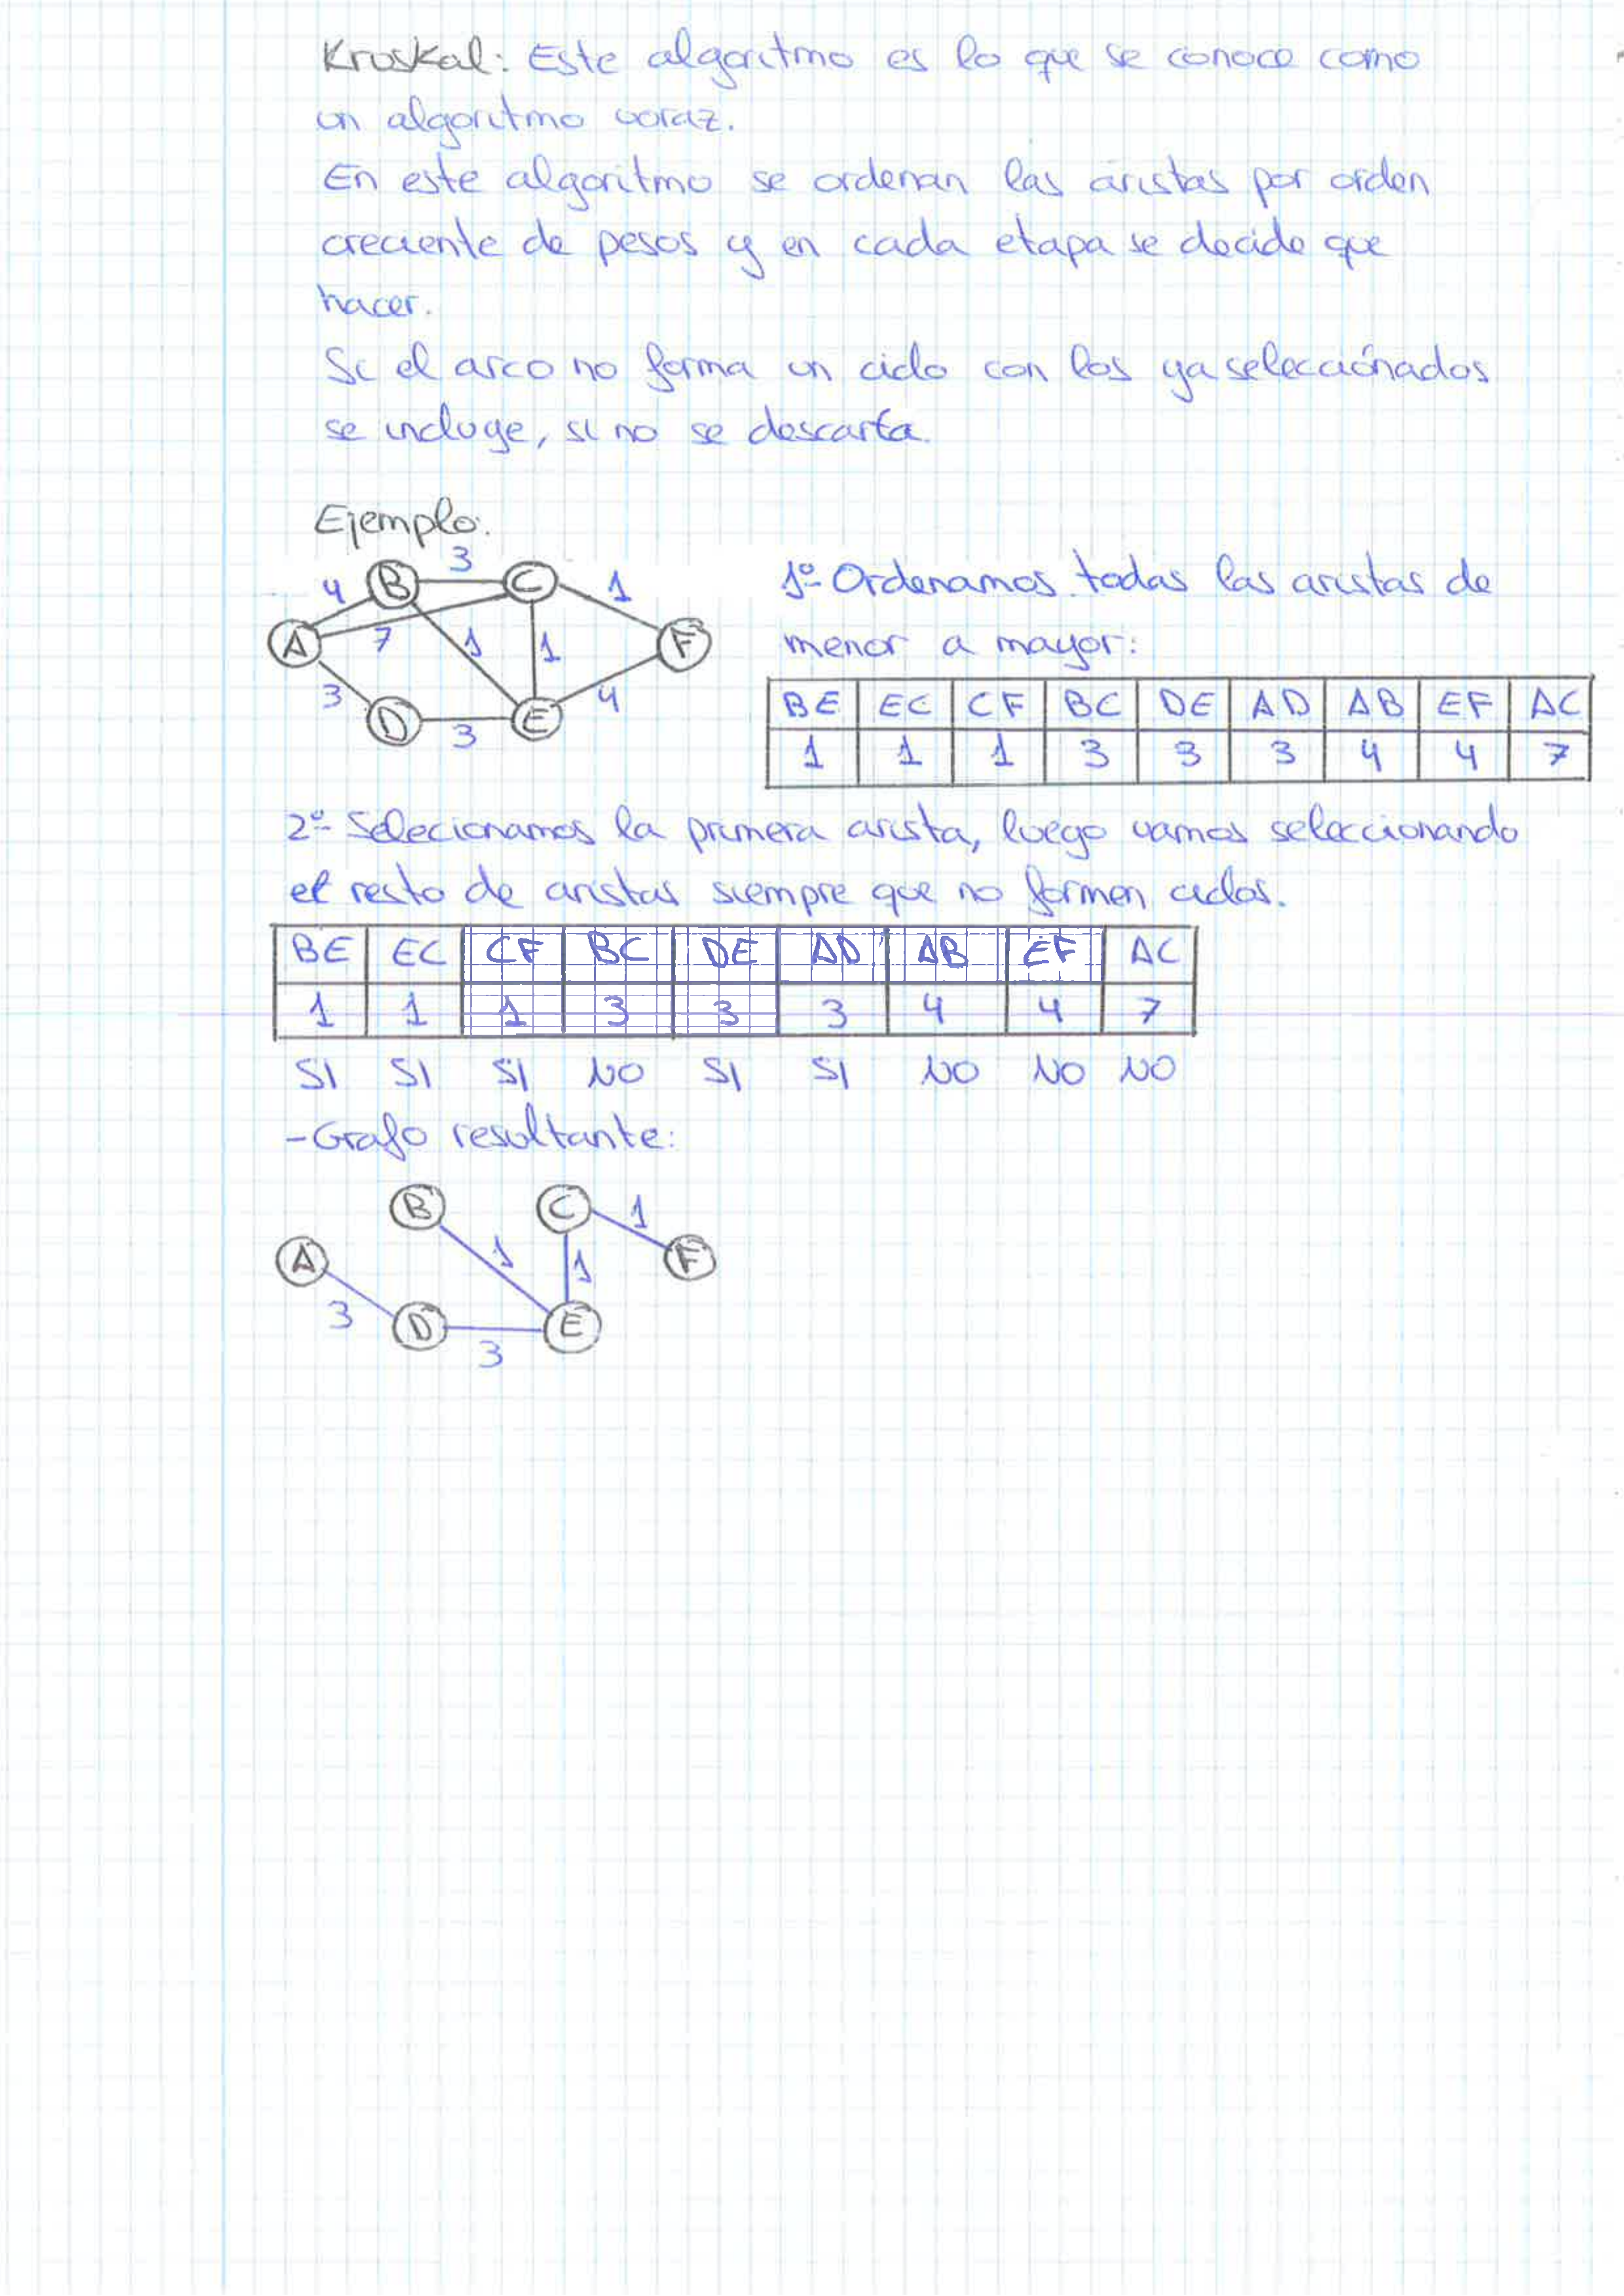 Kruskal: Este algoritmo es lo que se conoce como
un algoritmo voraz.
En este algoritmo se ordenan las aristas por orden
creciente de pesos y en cada etapa se decide que
hacer.
Si el arco no forma un ciclo con los ya seleccionados
se incluye, si no se descarta.
Ejemplo.
3
4 B C 1
A 7 1 1 F
3 4
D 3 E
1º- Ordenamos todas las aristas de
menor a mayor:
BE EC CF BC DE AD AB EF AC
1 1 1 3 3 3 4 4 7
2º- Selecionamos la primera arista, luego vamos seleccionando
el resto de aristas siempre que no formen ciclos.
BE EC CF BC DE AD AB EF AC
1 1 1 3 3 3 4 4 7
SI SI SI NO SI SI NO NO NO
-Grafo resultante:
B C 1
A 1 1 F
3 D E
3